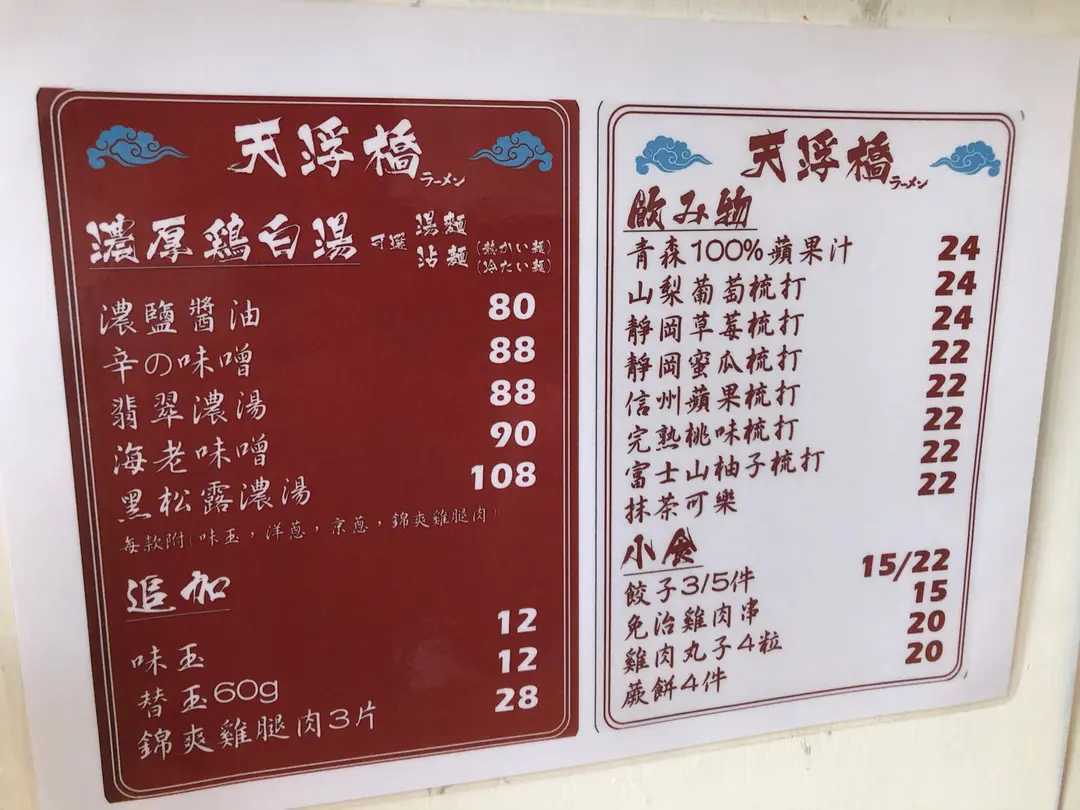 天浮橋
ラーメン
濃厚鶏白湯 可選 湯麵
沾麵 (熱かい麵)
(冷たい麵)
濃鹽醬油 80
辛の味噌 88
翡翠濃湯 88
海老味噌 90
黑松露濃湯 108
每款附(味玉，洋蔥，京蔥，錦爽雞腿肉)
追加
味玉 12
替玉60g 12
錦爽雞腿肉3片 28
天浮橋
ラーメン
飲み物
青森100%蘋果汁 24
山梨葡萄梳打 24
靜岡草莓梳打 24
靜岡蜜瓜梳打 22
信州蘋果梳打 22
完熟桃味梳打 22
富士山柚子梳打 22
抹茶可樂 22
小食
餃子3/5件 15/22
免治雞肉串 15
雞肉丸子4粒 20
蕨餅4件 20